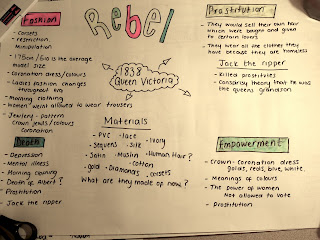 Rebel
Fashion
- Corsets
- restriction.
manipulation
- 175cm / Size 10 is the average
model size
- Coronation dress/colours
- Ladies fashion changes
throughout era
- Morning clothing
- Women want allowed to wear trousers
- Jewlery - pattern
Crown jewls/colours
coronation
1838
Queen Victoria
Prostitution
- They would sell their own hair
which were bought and given
to certain lovers
- They wear all the clothes they
have because they are homeless
Jack the ripper
- Killed prostitutes
- Conspiracy theory that he was
the queens grandson
Materials
- PVC - lace - Ivory
- Sequens - Silk
- Satin - Muslin - Human Hair?
- cotton
- gold - Diamonds - corsets
What are they made of now?
Death
- Depression
- Mental illness
- Morning clothing
- Death of Albert?
- Prostitution
- Jack the ripper
Empowerment
- Crown - coronation dress
golds, reds, blue, white.
- Meanings of colours
- The power of women
Not allowed to vote
- Prostitution